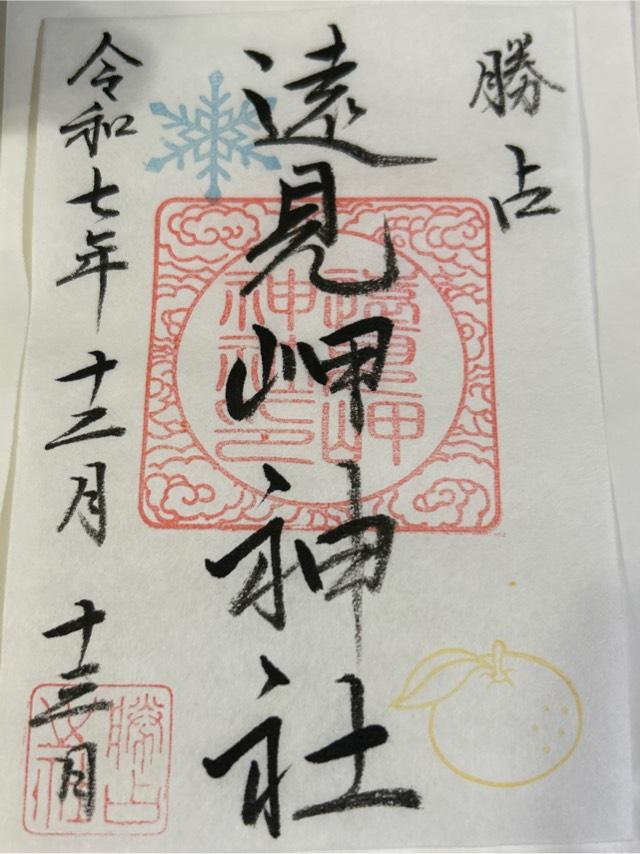 勝占
遠見岬神社
令和七年十二月十三日
遠見岬
神社印
勝占